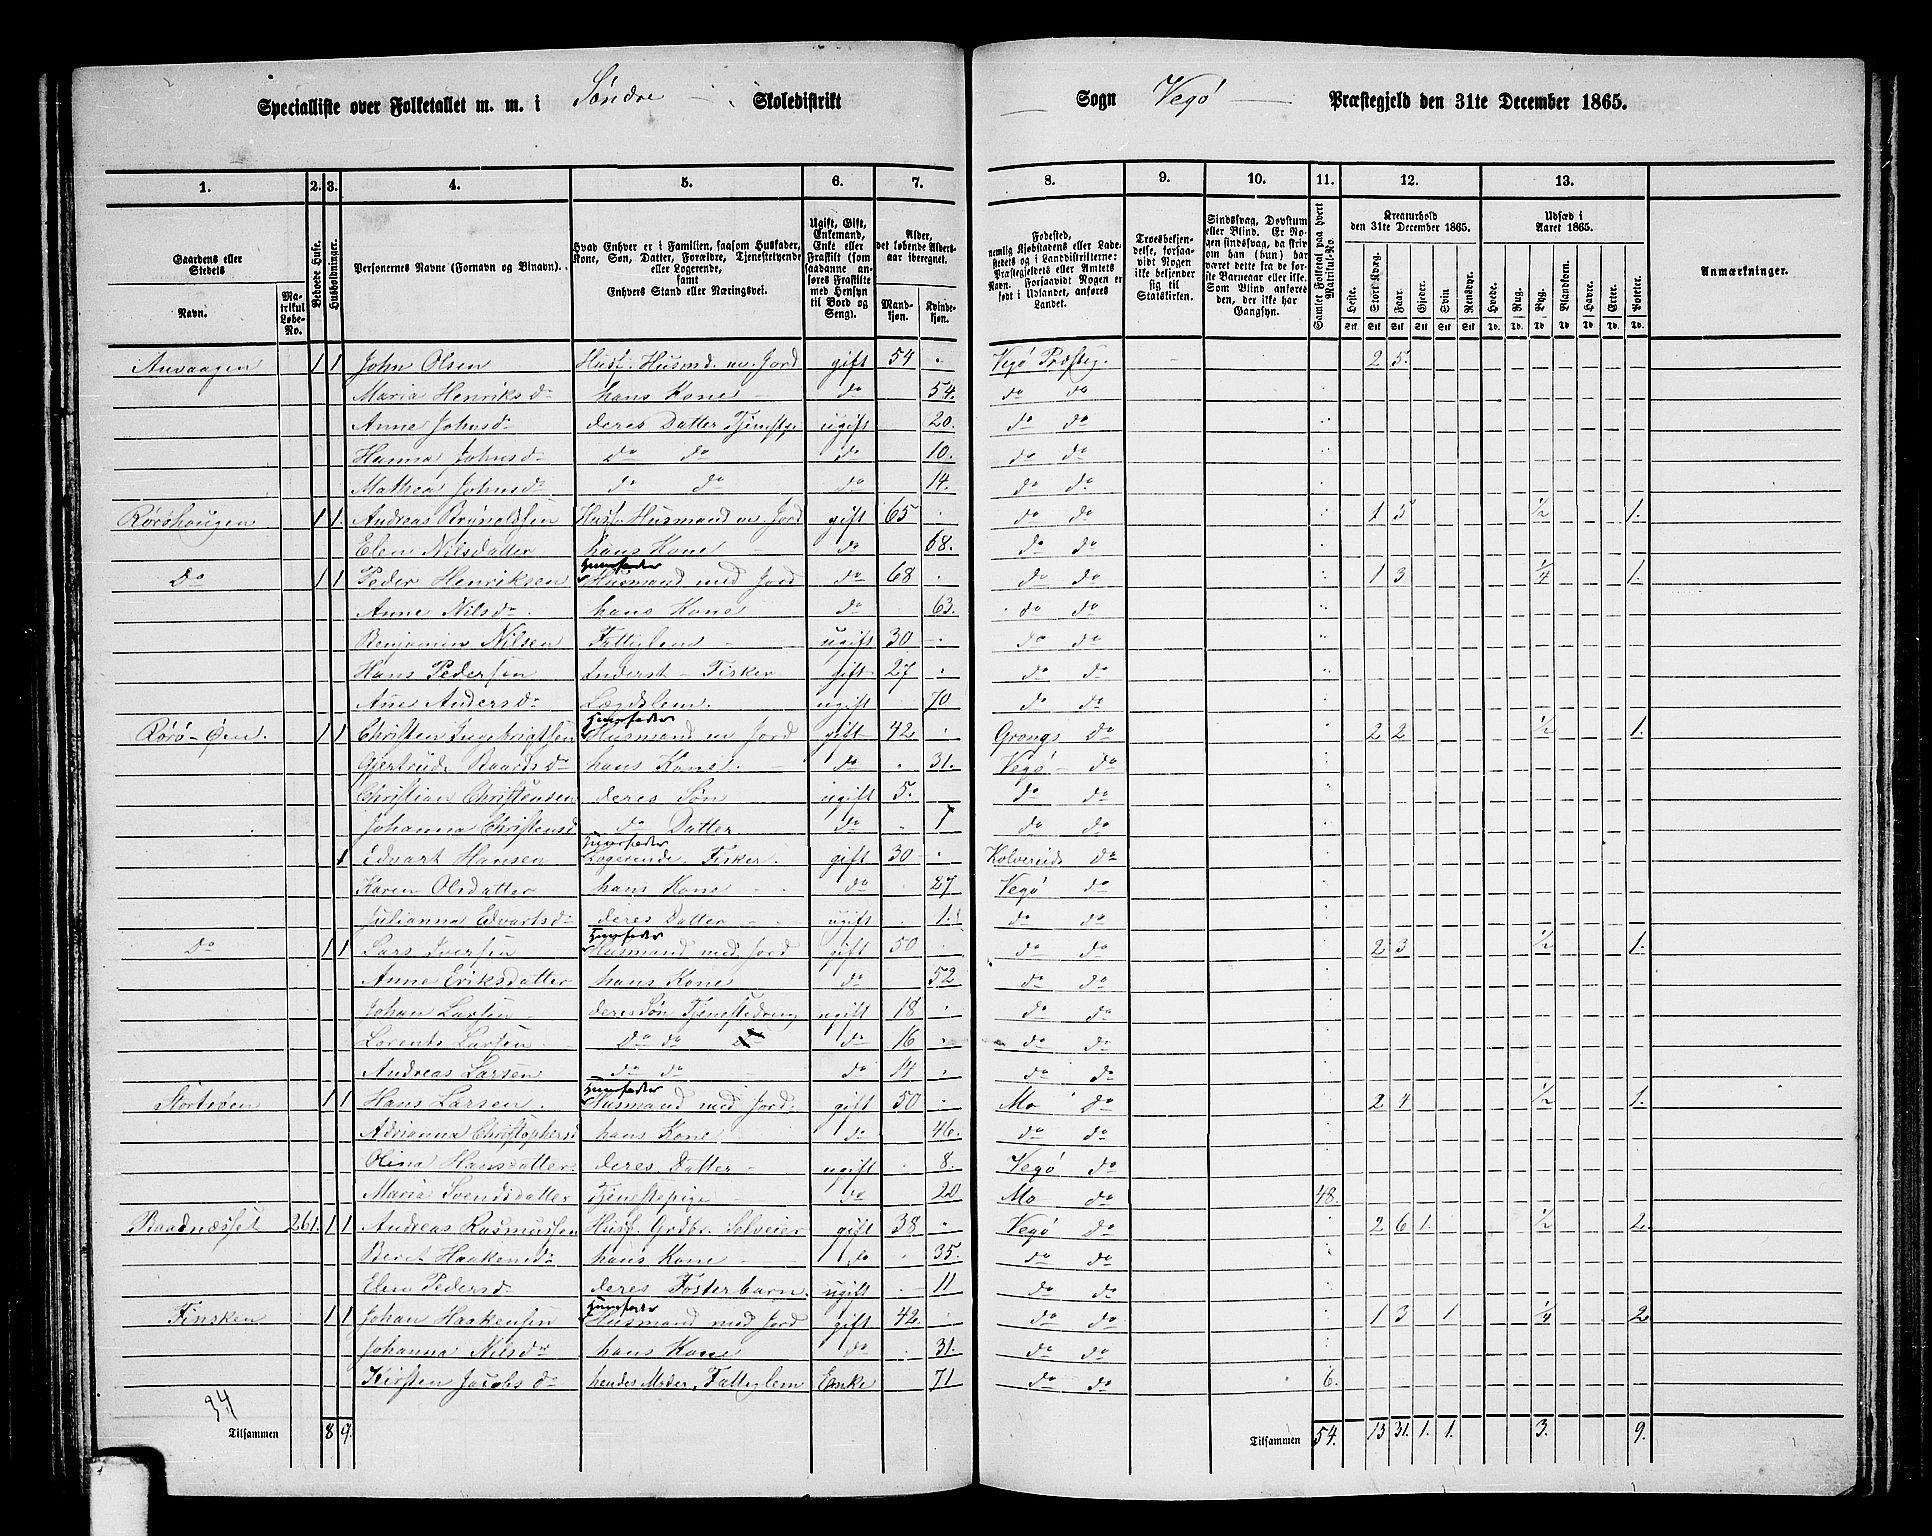 Specialliste over Folketallet m. m. i Søndre Skoledistrikt Sogn Vegø Præstegjeld den 31te December 1865.
1. 2. 3. 4. 5. 6. 7. 8. 9. 10. 11. 12. 13.
Gaardens eller Stedets
Navn. Matrikul Løbe-No.
Beboede Huse.
Husholdninger.
Personernes Navne (Fornavn og Tilnavn).
Hvad Enhver er i Familien, saasom Husfader, Kone, Søn, Datter, Forældre, Tjenestetyende eller Logerende, samt Enhvers Stand eller Næringsvei.
Ugift, Gift, Enkemand, Enke eller Fraskilt (som saadanne anføres Fraskilte med Hensyn til Bord og Seng).
Alder, det løbende Aldersaar iberegnet.
Mandkjøn. Kvindekjøn.
Fødested, nemlig Kjøbstadens eller Ladestedets og i Landdistrikterne: Præstegjeldets eller Amtets Navn. Forsaavidt Nogen er født i Udlandet, anføres Landet.
Troesbekjendelse, forsaavidt Nogen ikke bekjender sig til Statskirken.
Sindssvag, Døvstum eller Blind. Er Nogen sindssvag, da skriv om han (hun) har været dette fra de første Barneaar eller ikke. Som Blind anføres den, der ikke har Gangsyn.
Samlet Folketal paa hvert Matrikul-No.
Kreaturhold den 31te December 1865.
Heste. Stort Kvæg. Faar. Gjeder. Svin Rensdyr.
Udsæd i Aaret 1865.
Hvede. Rug. Byg. Blandkorn. Havre. Erter. Poteter.
Stk Stk Stk Stk Stk Stk Td. Td. Td Td Td Td. Td.
Anmærkninger.
Anvaagen 1 1 John Olsen Husf. Husmd. m. Jord gift 54 Vegø Præsteg. 2 5.
Maria Henriksd hans Kone do 54. do do
Anne Johnsd deres Datter Tjenestp. ugift 20. do do
Hanna Johnsd do do do 10. do do
Mathea Johnsd do do do 14. do do
Rørøhaugen 1 1. Andreas Brynoldsen Husf. Husmand m Jord gift 65 do do 1 5 1/2 1.
Elen Nilsdatter hans Kone do 68. do do
Do 1 1 Peder Henriksen Huusfader Husmand med Jord do 68 do do 1 3 1/4 1.
Anne Nilsd. hans Kone do 63. do do
Benjamin Nilsen Fattiglem ugift 30 do do
Hans Pedersen Inderst Fisker gift 27 do do
Ane Andersd. Lægdslem ugift 70 do do
Rørø-Øen. 1 1 Christen Ingebrigtsen Huusfader Husmand m Jord gift 42 Grongs do 2 2 1/2 1.
Gjertrud Baardsd hans Kone. do 31. Vegø do
Christian Christensen deres Søn ugift 5. do do
Johanna Christensd do Datter do 1 do do
1 Edvart Hansen Huusfader Logerende. Fisker. gift 30 Kolvereids do
Karen Olsdatter hans Kone do 27 Vegø do
Julianna Edvartsd deres Datter ugift 1. do do
Do 1 1 Lars Iversen Huusfader Husmand med Jord gift 50 do do 2 3 1/2 1.
Anne Eriksdatter hans Kone do 52 do do
Johan Larsen deres Søn Tjenestedreng ugift 18 do do
Lorents Larsen do do do 16 do do
Andreas Larsen do do do 14 do do
Stortrøen 1 1 Hans Larsen. Huusfader Husmand med Jord. gift 50 Mo do 2 4 1/2 1.
Adrianna Christophersd hans Kone do 46. do do
Olina Hansdatter deres Datter ugift 8. Vegø do
Maria Svendsdatter Tjenestepige do 20 Mo do 48.
Raadnæsset 261. 1 1 Andreas Rasmussen Husf. Grdbr. Selveier gift 38 Vegø do 2 6 1. 1/2 2.
Beret Haakensd hans Kone do 35. do do
Elen Pedersd. deres Fosterbarn. ugift 11 do do
Finsken 1 1 Johan Haakensen Huusfader Husmand med Jord gift 42. do do 1 3 1 1/4 2.
Johanna Nilsd hans Kone do 31. do do
Kirsten Jacobsd hendes Moder, Fattiglem Enke 71 do do 6.
34
Tilsammen 8 9. Tilsammen 54. 13 31. 1. 1. 3. 9.